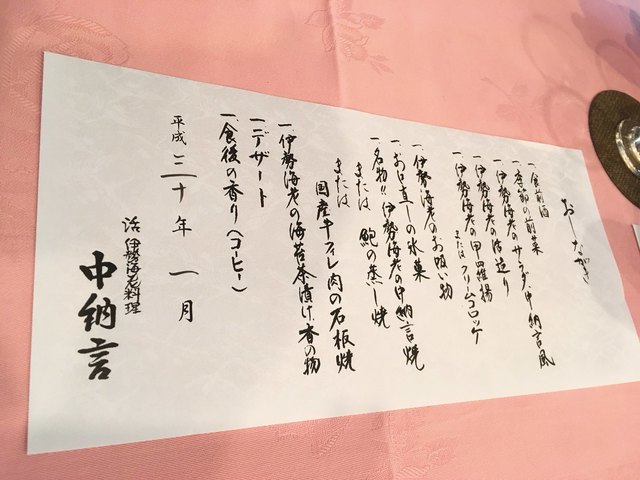 おしながき
一 食前酒
一 季節の前菜
一 伊勢海老のサラダ、中納言風
一 伊勢海老の活造り
一 伊勢海老の甲羅揚
または クリームコロッケ
一 伊勢海老のお吸い物
一 お口直しの氷菓
一 名物!! 伊勢海老の中納言焼
または 鮑の蒸し焼
または 国産牛フィレ肉の石板焼
一 伊勢海老の海苔茶漬け、香の物
一 デザート
一 食後の香り(コーヒー)
平成 三十 年 一 月
活伊勢海老料理
中納言